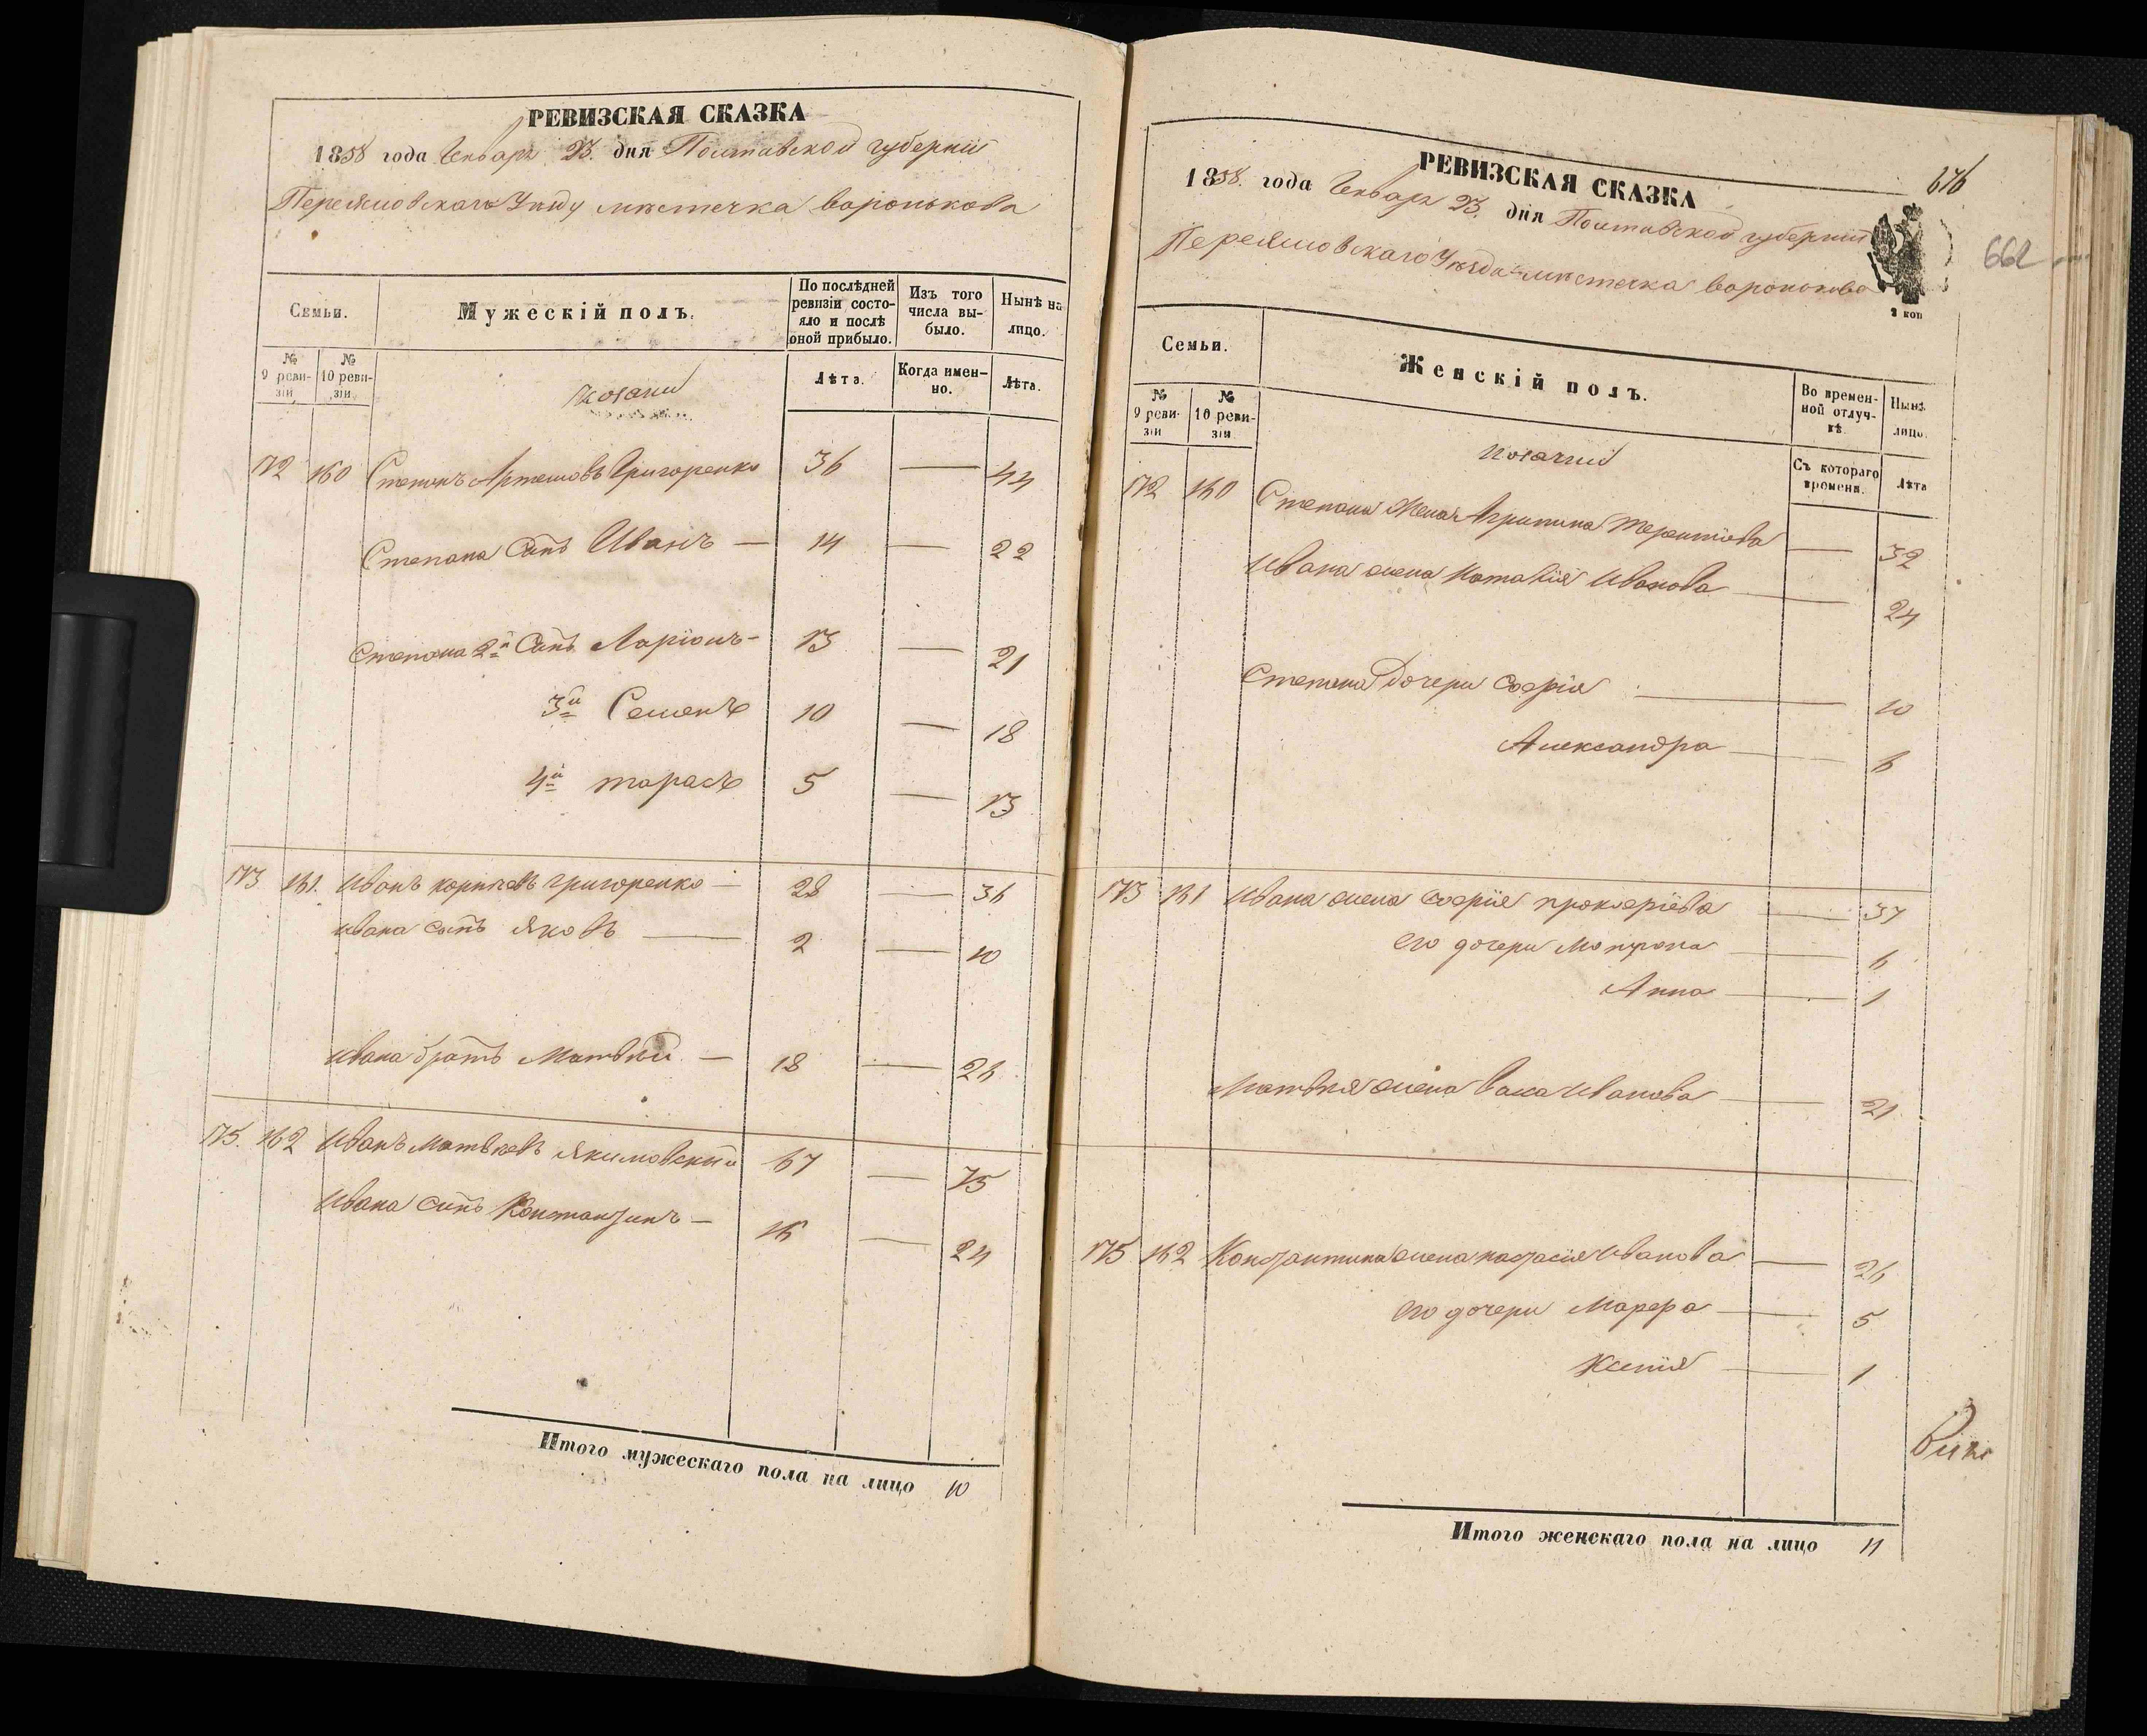 РЕВИЗСКАЯ СКАЗКА
1858 года Генваря 23. дня Полтавской губерніи
Переяславскаго Уѣзду мѣстечка воронькова
Семьи.
Мужескій полъ.
По послѣдней ревизіи состояло и послѣ оной прибыло.
Изъ того числа выбыло.
Нынѣ на лицо.
№ 9 ревизіи
№ 10 ревизіи
Козаки
Лѣта.
Когда именно.
Лѣта.
172 160 Степанъ Артемовъ Григоренко 36 — 44
Степана Сынъ Иванъ — 14 — 22
Степана 2й Сынъ Ларіонъ - 13 — 21
3й Семенъ 10 — 18
4й тарасъ 5 — 13
173 161. Иванъ корнѣевъ григоренко — 28 — 36
ивана сынъ Яковъ — 2 — 10
ивана братъ Матвѣй — 18 — 26
175. 162 Иванъ матвѣевъ Якимовскій 67 — 75
Ивана сынъ Константинъ — 16 — 24
Итого мужескаго пола на лицо 10
676
662
РЕВИЗСКАЯ СКАЗКА
1858. года Генваря 23. дня Полтавской губерніи
Переяславскаго Уѣзда мѣстечка воронькова
2 коп
Семьи.
Женскій полъ.
Во временной отлучкѣ.
Нынѣ лицо.
№ 9 ревизіи
№ 10 ревизія
Козачки
Съ котораго времени.
Лѣта
172 160 Степана Жена Агрипина Терентіева — 32
Ивана жена Наталія Иванова — 24
Степана Дочери Софія — 10
Александра — 6
173 161 Ивана жена софія прокофіева — 37
его дочери Мотрона — 6
Анна — 1
Матвѣя жена Васа Иванова — 21
175 162 Константина жена настасія Иванова — 26
его дочери Марфа — 5
Ксенія — 1
Итого женскаго пола на лицо 11